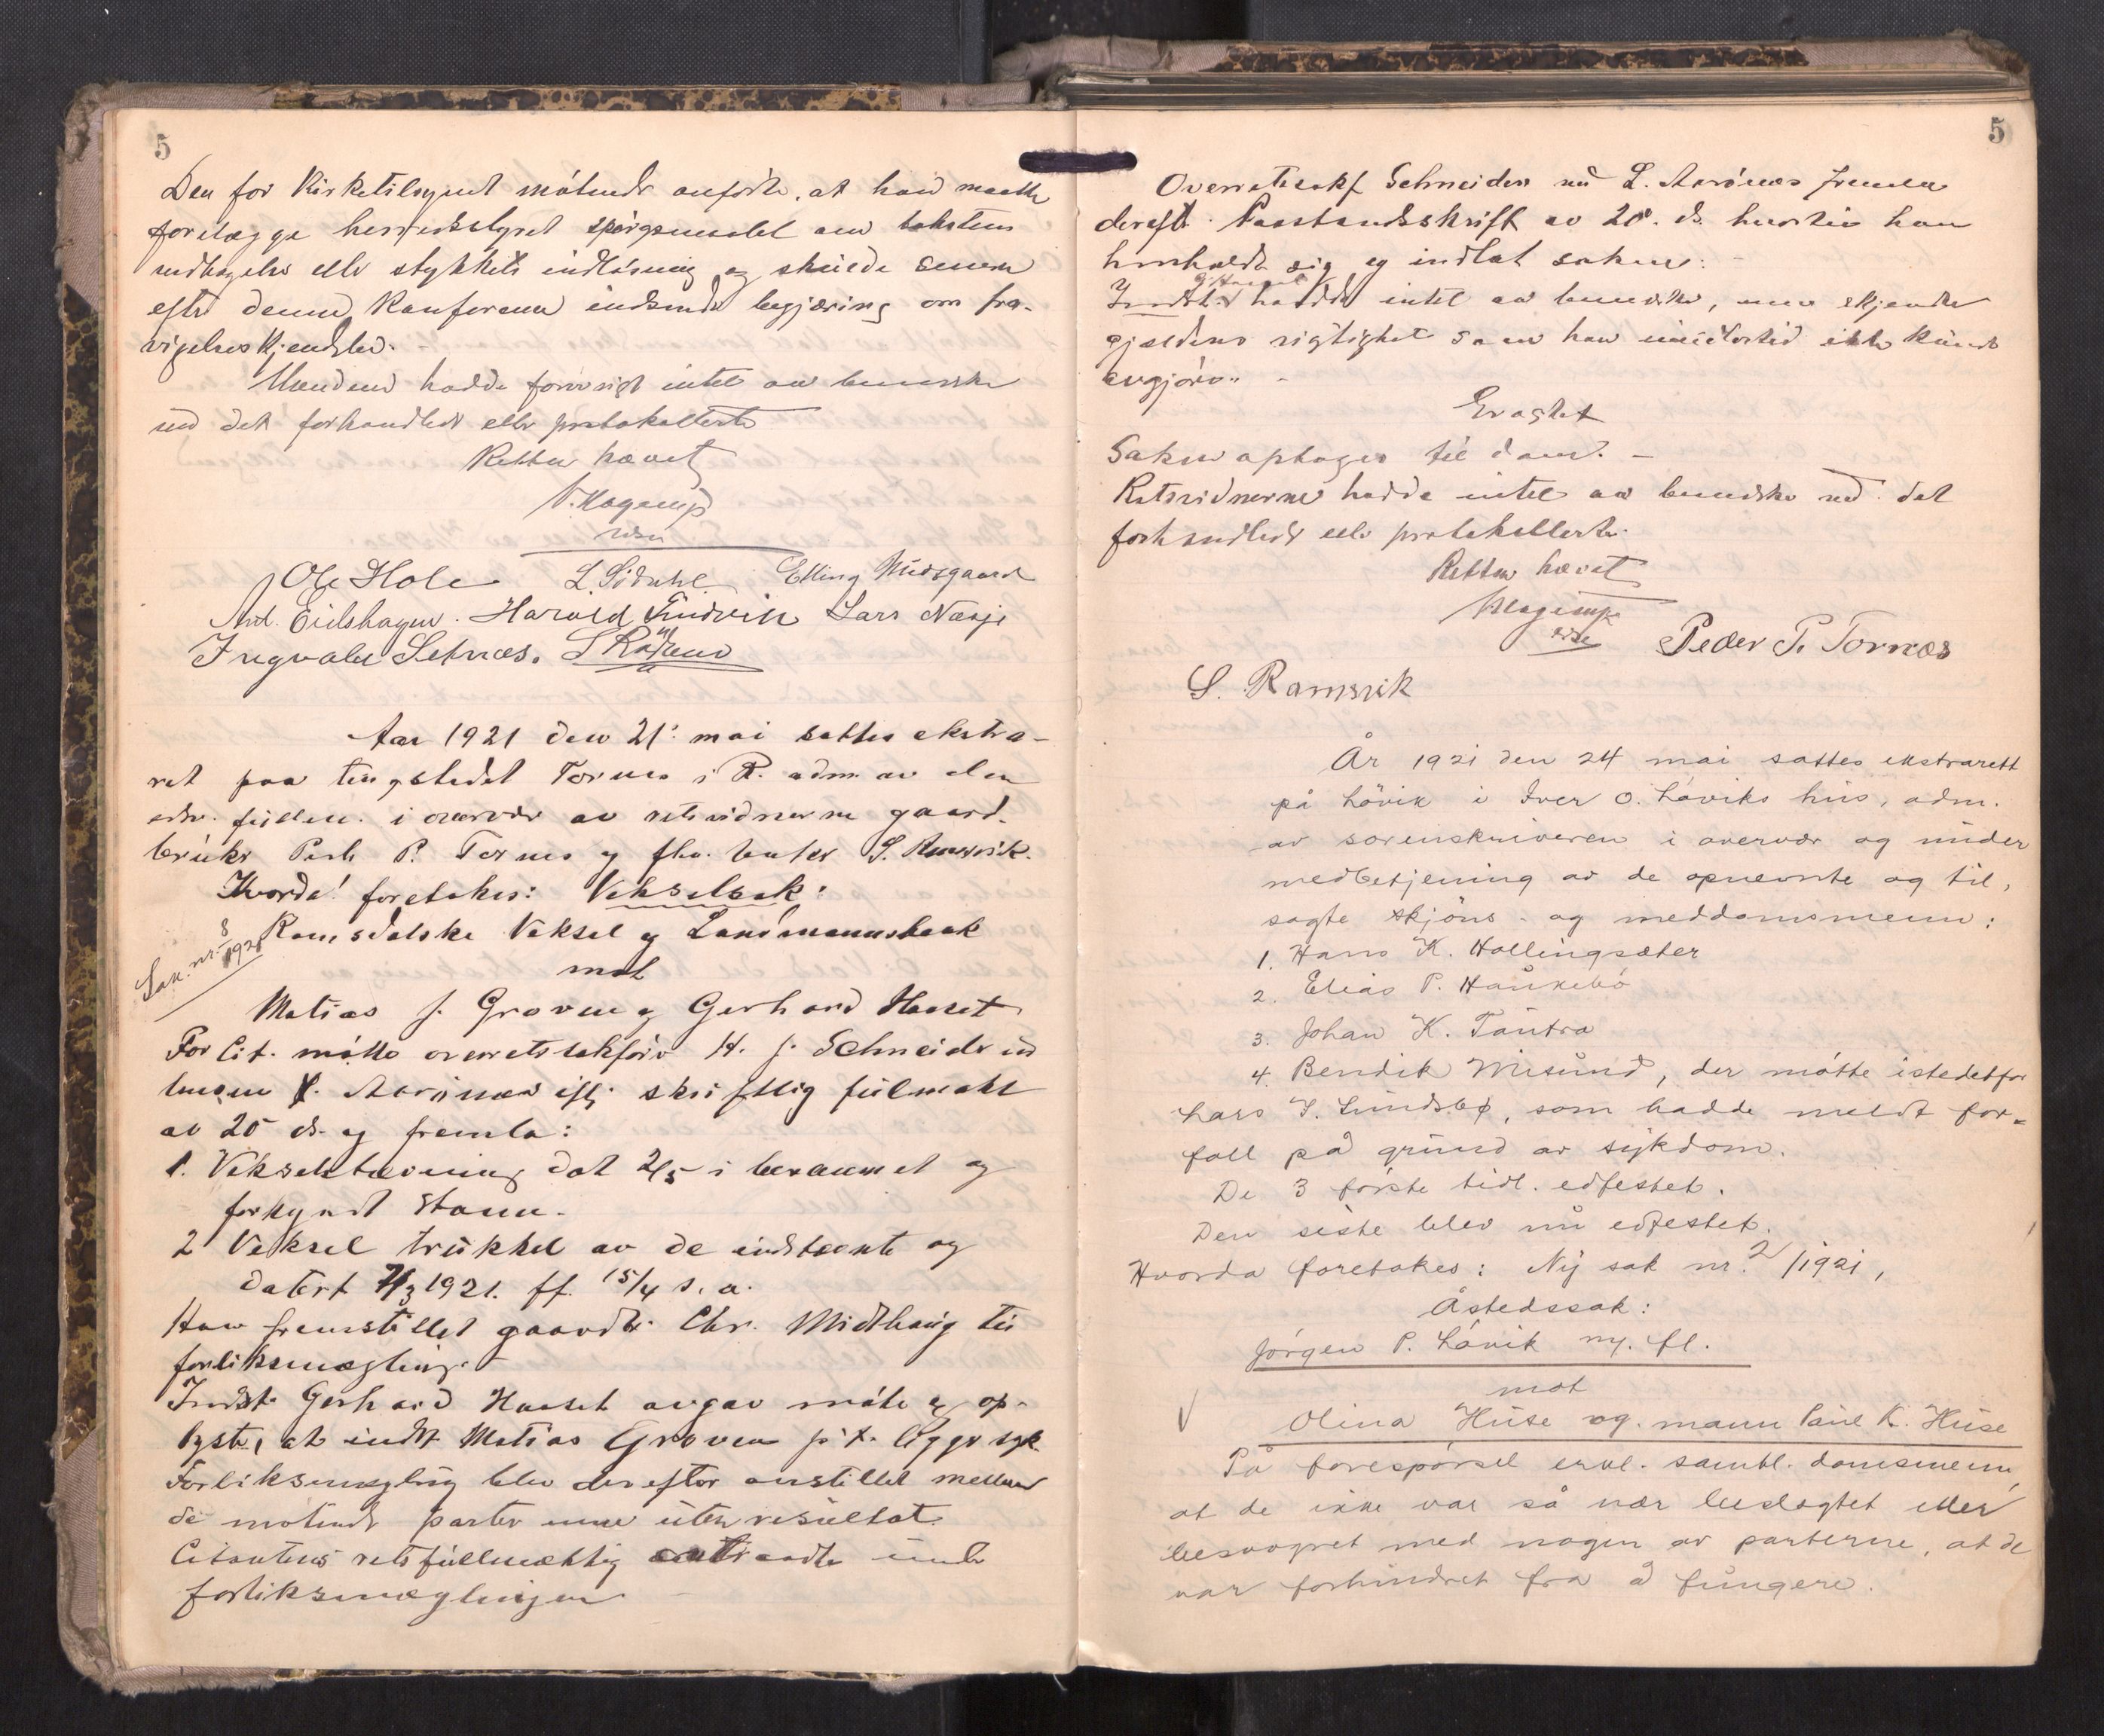 5
Den for Kirketilsynet møtende anførte, at han maatte
forelægge herredsstyret spørgsmaalet om takstens
vedtagelse eller stykkets indløsning og skulde senere
efter denne konferanse indsende begjæring om fra-
vigelseskjendelse.
Mændene hadde forøvrigt intet at bemerke
ved det forhandlede eller protokollerte
Retten hævet
Ole Hole L. Sødahl Elling Midsgaard
And. Eidshagen. Harald Lars Næsje
Ingvald Setnæs.
Aar 1921 den 21. mai sattes ekstra-
ret paa tingstedet Tornes i R. adm. av den
edsv. fuldm. i overvær av retsvidnerne gaard-
bruker Peder P. Tornes og fhv. S. Ramsvik.
Hvorda! foretokes: Vekselsak:
Sak. nr. 8/1921
Romsdalske Veksel og Landmannsbank
mot
Matias J. Groven og Gerhard Haaset
For Cit. møtte overretssakfører H. J. Schneider ved
skriftlig fulmakt
av 20 ds. og fremla:
1. Vekselstævning dat 2/5 i beramt og
forkyndt stand.
2 Veksel trukket av de indstevnte og
datert 7/3 1921. ff. 15/4 s. a.
Han fremstillet gaardbr. Chr. Midthaug til
forliksmægling.
Indst. Gerhard Haaset avgav møte og op-
lyste, at indst. Matias Groven p. t. ligger syk.
Forliksmægling blev derefter anstillet mellem
de møtende parter men uten resultat.
Citantens retsfuldmægtig under
forliksmæglingen
5
Overretssakf Schneider ved L. fremla
dereft. Paastandsskrift av 20. ds. hvortil han
henholdt sig og indlot saken: -
Indst. hadde intet at bemerke, men erkjendte
gjældens rigtighet som han imidlertid ikke kunde
avgjøre. -
Eragtet
Saken optages til dom. -
Retsvidnerne hadde intet at bemerke ved det
forhandlede eller protokollerte.
Retten hævet
Peder P. Tornæs
S. Ramsvik
År 1921 den 24 mai sattes ekstrarett
på Løvik i Iver O. Løviks hus, adm.
av sorenskriveren i overvær og under
medbetjening av de opnevnte og til,
sagte skjøns- og meddomsmenn:
1. Hans K. Hollingsæter
2. Elias P. Haukebø
3. Johan K. Tautra
4. Bendik Misund, der møtte istedetfor
Lars I. Lundsbø, som hadde meldt for-
fall på grund av sykdom.
De 3 første tidl. edfestet.
Den siste blev nu edfestet.
Hvorda foretokes: Ny sak nr. 2/1921,
Åstedssak:
Jørgen P. Løvik m. fl.
mot
Olina Huse og mann Paul K. Huse
På forespørsel erkl. samtl. domsmenn,
at de ikke var så nær beslegtet eller
besvogret med nogen av parterne, at de
var forhindret fra å fungere.